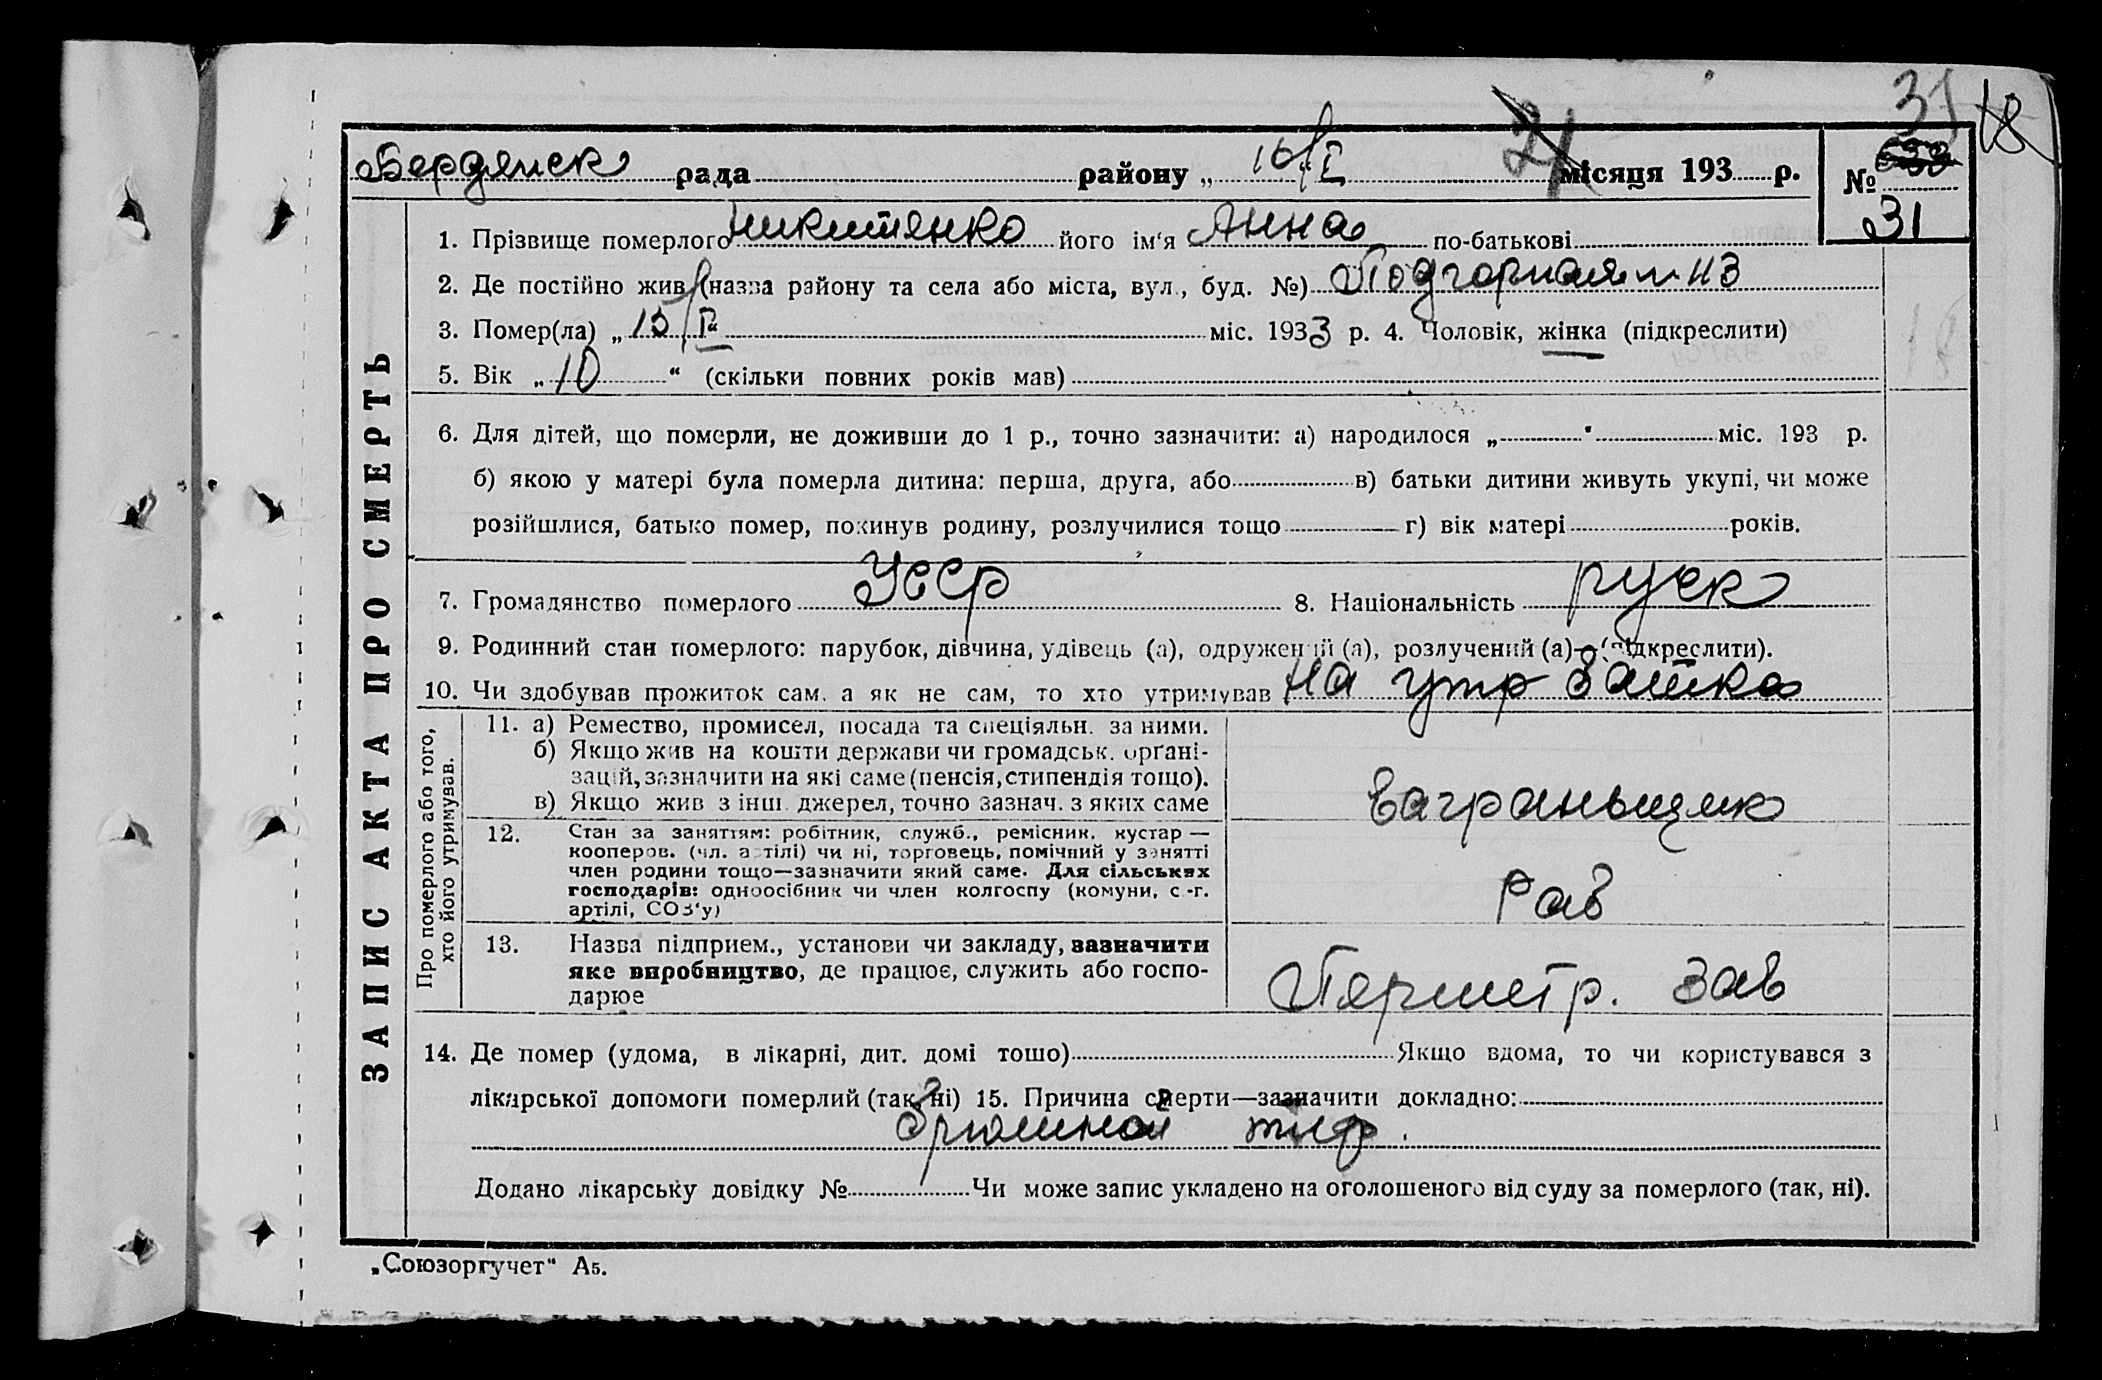 31 18
Бердянск рада района „ 16/I місяця 193 р. №
31
1. Прізвище померлого Никитенко його ім'я Анна по-батькові
2. Де постійно жив (назва району та села або міста, вул., буд. №) Подгорная № 113
3. Помер(ла) „ 15/I “ міс. 1933 р. 4. Чоловік, жінка (підкреслити)
5. Вік „ 10 “ (скільки повних років мав)
6. Для дітей, що померли, не доживши до 1 р., точно зазначити: а) народилося „ “ міс. 193 р.
б) якою у матері була померла дитина: перша, друга, або в) батьки дитини живуть укупі, чи може
розійшлися, батько помер, покинув родину, розлучилися тощо г) вік матері років.
7. Громадянство померлого УССР 8. Національність руск
9. Родинний стан померлого: парубок, дівчина, удівець (а), одружений (а), розлучений (а) (підкреслити).
10. Чи здобував прожиток сам, а як не сам, то хто утримував на утр батька
ЗАПИС АКТА ПРО СМЕРТЬ
Про померлого або того,
хто його утримував.
11. а) Ремество, промисел, посада та спеціяльн. за ними.
б) Якщо жив на кошти держави чи громадськ. орґані-
зацій, зазначити на які саме (пенсія, стипендія тощо).
в) Якщо жив з інш. джерел, точно зазнач. з яких саме
Ваграньщик
12. Стан за заняттям: робітник, служб., ремісник, кустар —
кооперов. (чл. артілі) чи ні, торговець, помічний у занятті
член родини тощо—зазначити який саме. Для сільських
господарів: одноосібник чи член колгоспу (комуни, с.-г.
артілі, СОЗ'у)
Раб
13. Назва підприєм., установи чи закладу, зазначити
яке виробництво, де працює, служить або госпо-
дарює
Первметр. Зав
14. Де помер (удома, в лікарні, дит. домі тощо) Якщо вдома, то чи користувався з
лікарської допомоги померлий (так, ні) 15. Причина смерти—зазначити докладно:
Брюшной тиф.
Додано лікарську довідку № Чи може запис укладено на оголошеного від суду за померлого (так, ні).
„Союзоргучет“ А5.